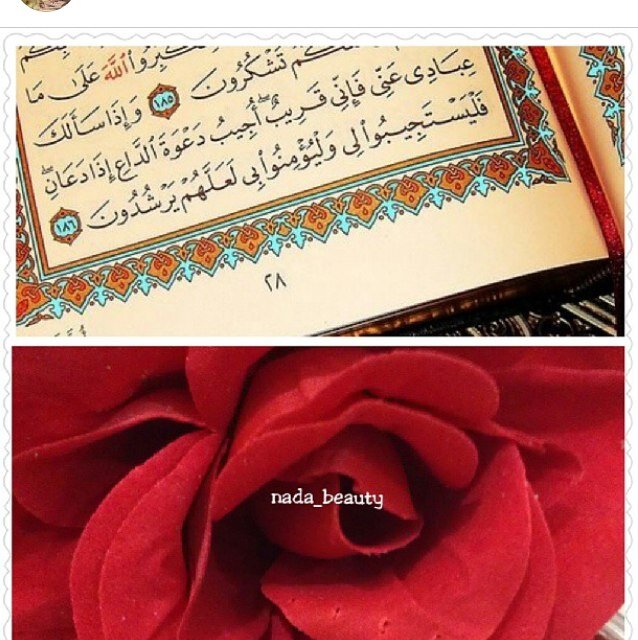 تُكَبِّرُوا۟ ٱللَّهَ عَلَىٰ مَا
تَشْكُرُونَ ١٨٥ وَإِذَا سَأَلَكَ
عِبَادِى عَنِّى فَإِنِّى قَرِيبٌ أُجِيبُ دَعْوَةَ ٱلدَّاعِ إِذَا دَعَانِ
فَلْيَسْتَجِيبُوا۟ لِى وَلْيُؤْمِنُوا۟ بِى لَعَلَّهُمْ يَرْشُدُونَ ١٨٦
٢٨
nada_beauty